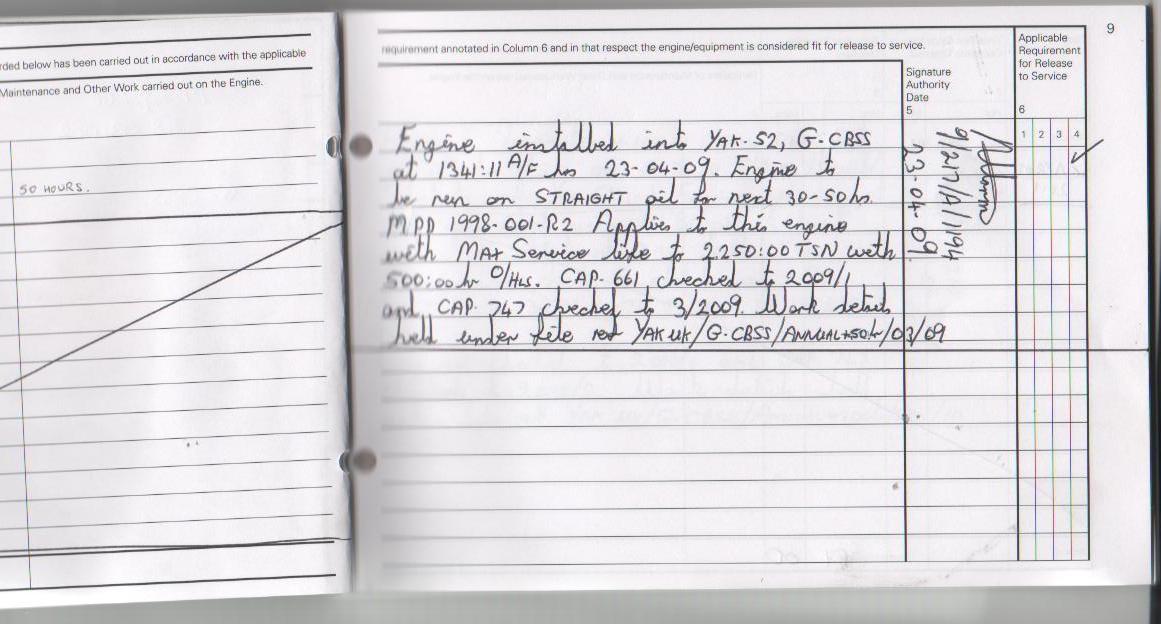 rded below has been carried out in accordance with the applicable
Maintenance and Other Work carried out on the Engine.
50 HOURS.
9
requirement annotated in Column 6 and in that respect the engine/equipment is considered fit for release to service.
Signature
Authority
Date
5
Applicable
Requirement
for Release
to Service
6
1 2 3 4
Engine installed into YAK-52, G-CBSS
at 1341:11 A/F hrs 23-04-09. Engine to
be run on STRAIGHT oil for next 30-50hrs.
MPD 1998-001-R2 Applies to this engine
with MAX Service life to 2250:00 TSN with
500:00 hr O/HLs. CAP-661 checked to 2009/1
and CAP-747 checked to 3/2009. Work details
held under file ref YAK UK/G-CBSS/ANNUAL+50hr/03/09
9/217/A/1194
23-04-09